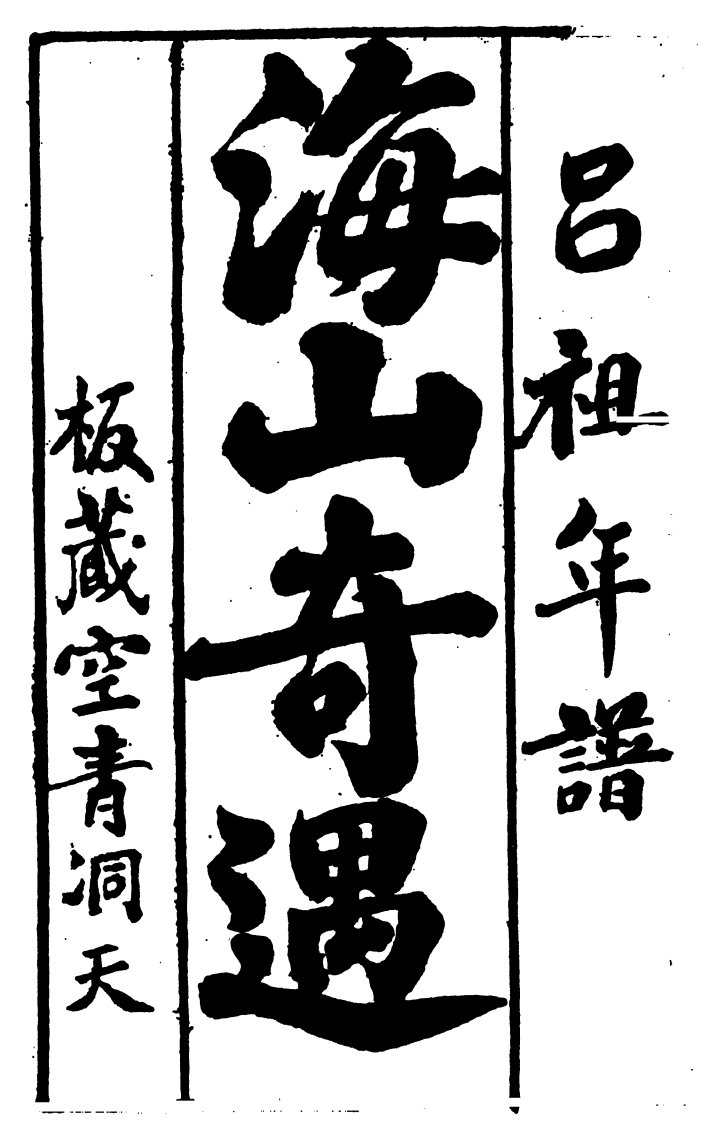 呂祖年譜
海山奇遇
板藏空青洞天